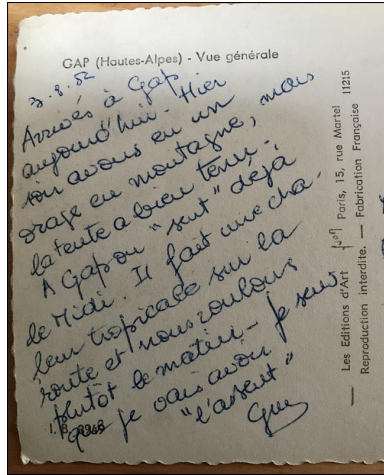 GAP (Hautes-Alpes) - Vue générale
3.8.52
Arrivés à Gap
aujourd'hui. Hier
soir avons eu un
orage en montagne, mais
la tente a bien tenu.
A Gap on "sent" déjà
le Midi. Il fait une cha-
leur tropicale sur la
route et nous roulons
plutôt le matin - Je sens
que je vais avoir
"l'assent"
Guy
Les Editions d'Art Paris, 15, rue Martel 11215
Reproduction interdite. — Fabrication Française